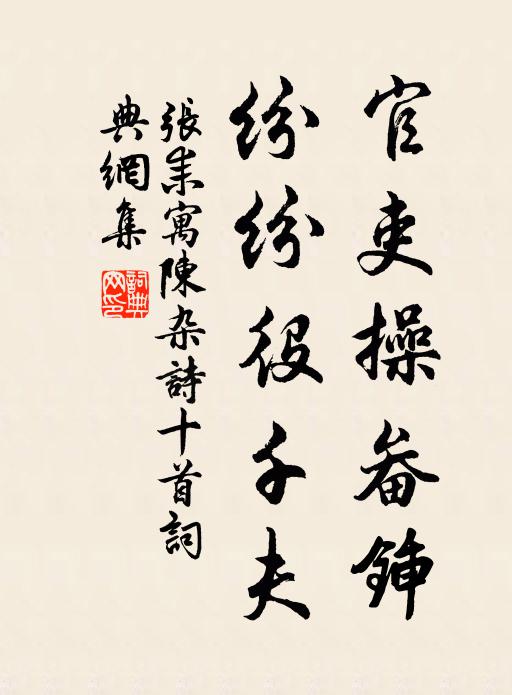 官吏操畚鍤
紛紛役千夫
張耒寓陳杂詩十首詞
典網集
詞典
网印